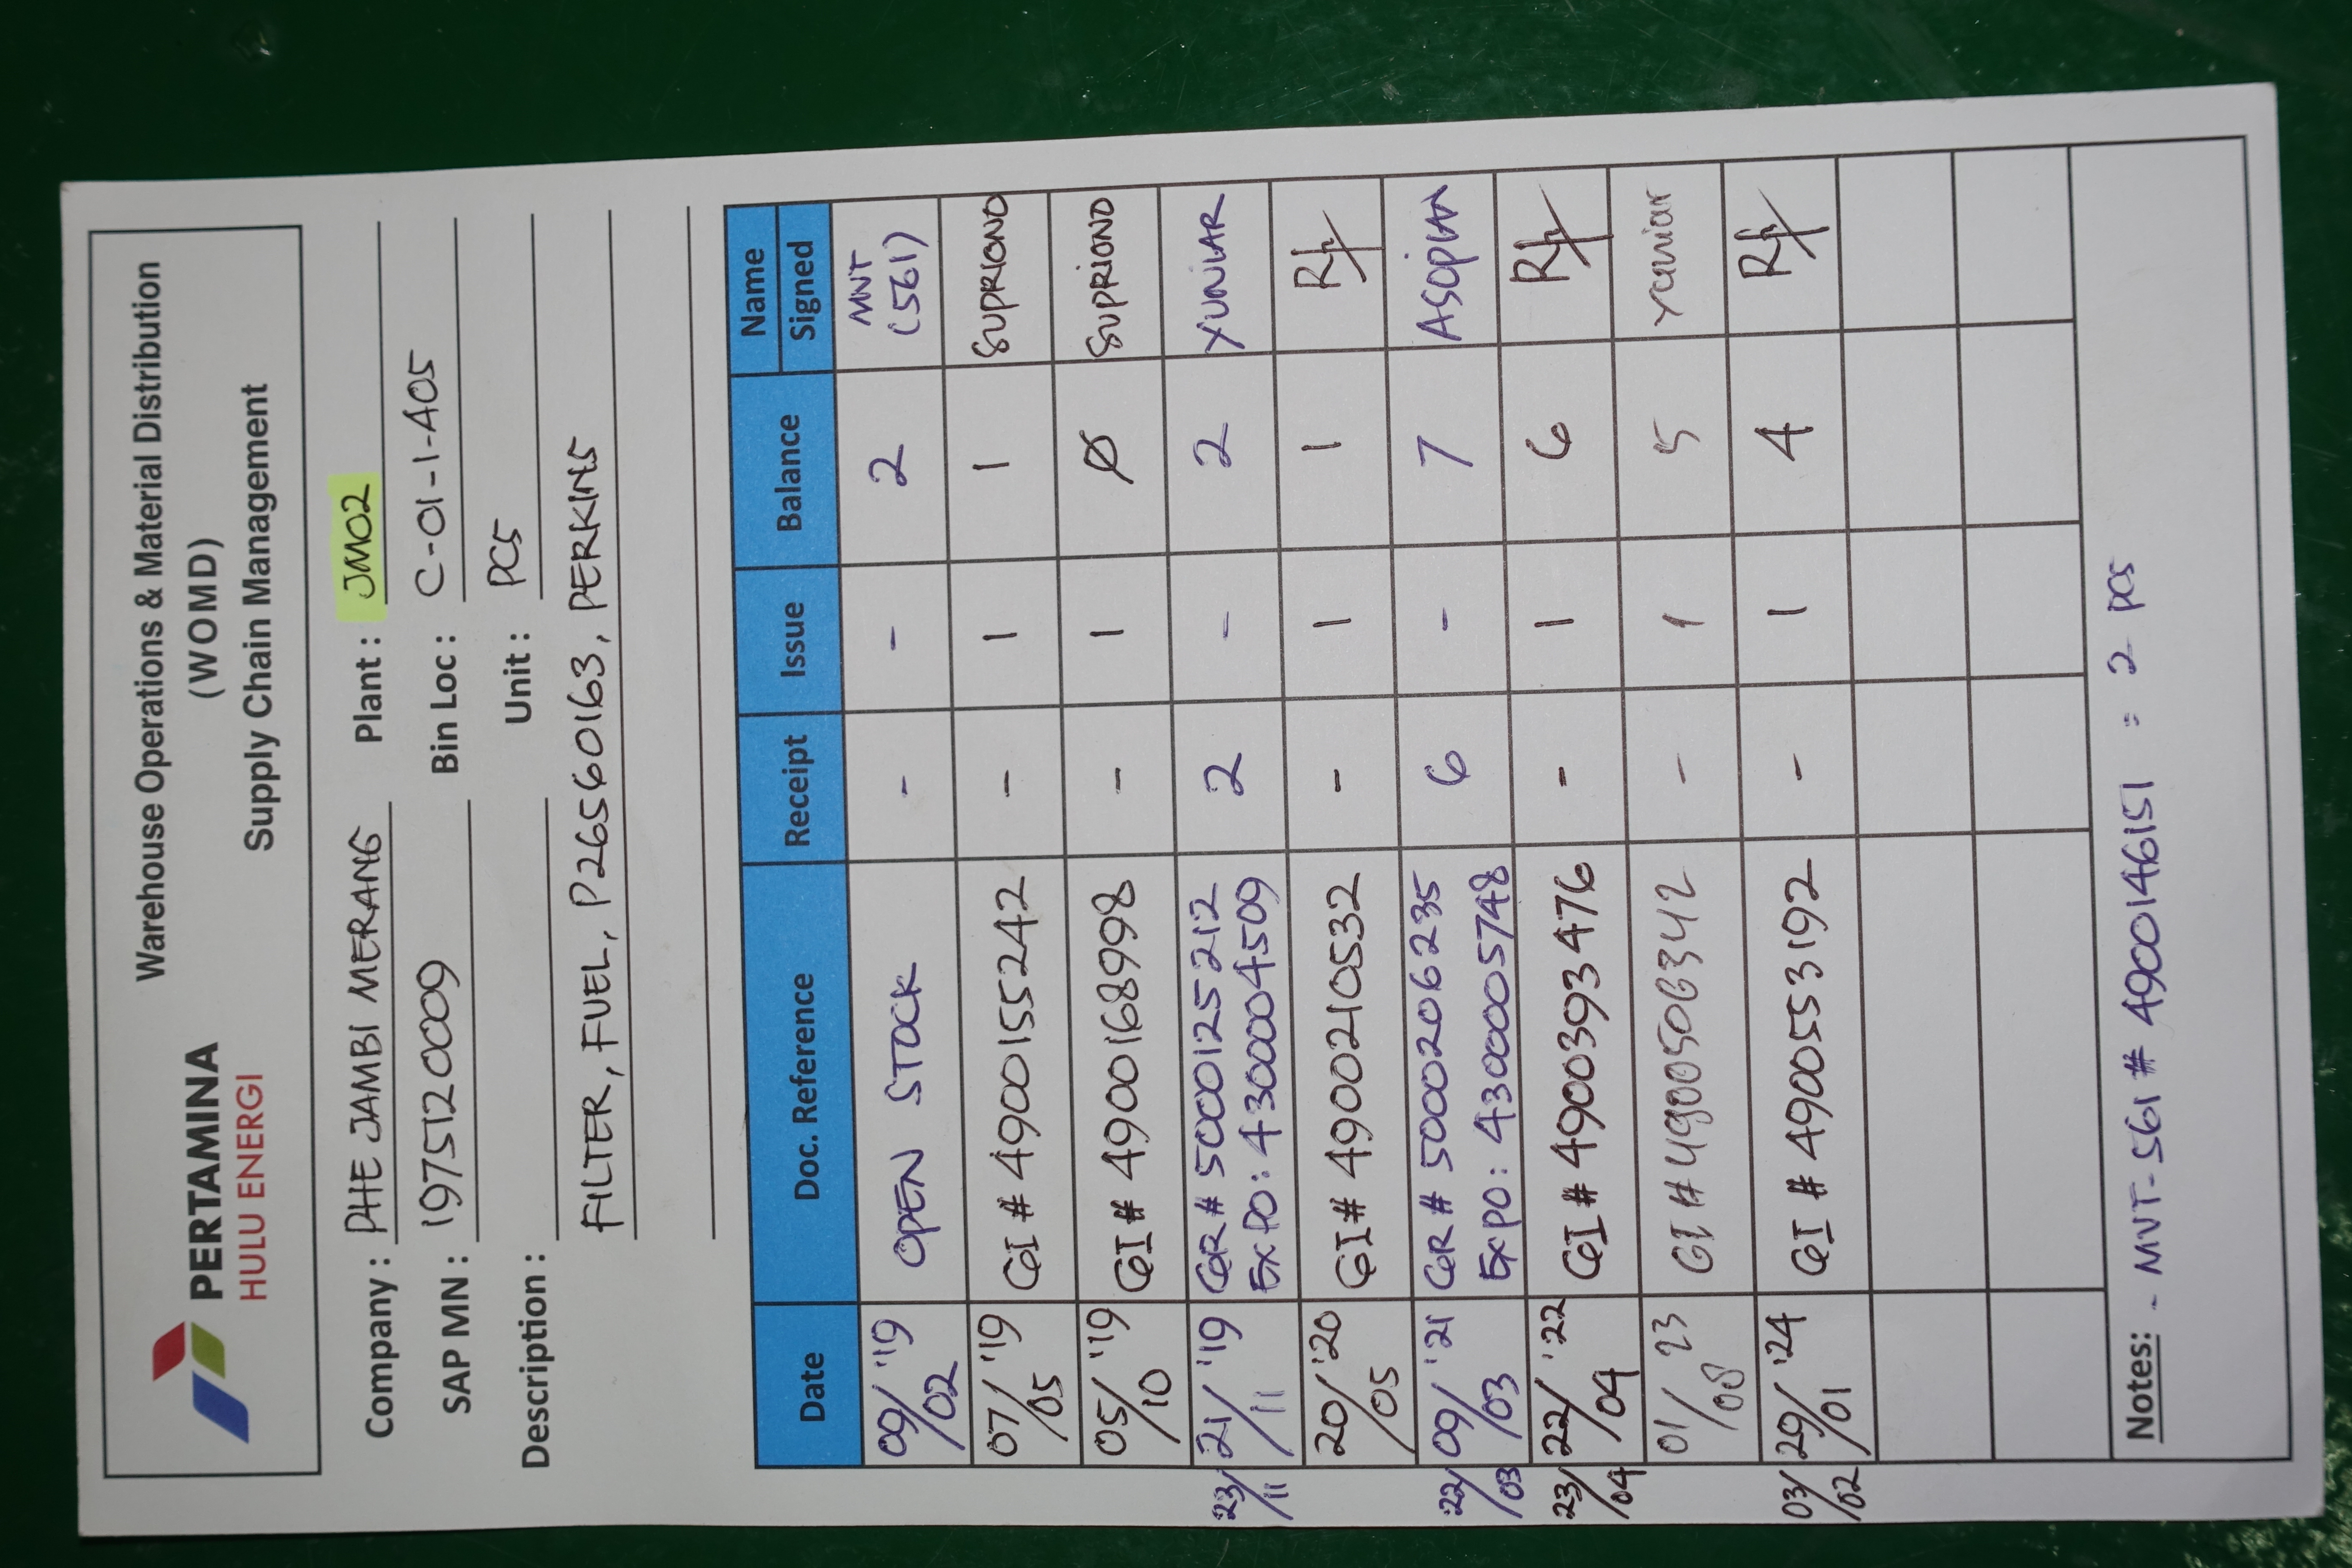 PERTAMINA
HULU ENERGI
Warehouse Operations & Material Distribution
(WOMD)
Supply Chain Management
Company : PHE JAMBI MERANG Plant : JM02
SAP MN : 1975120009 Bin Loc : C-01-1-A05
Description : Unit : PCS
FILTER, FUEL, P26560163, PERKINS
Date Doc. Reference Receipt Issue Balance Name Signed
09/02 '19 OPEN STOCK - - 2 MVT (561)
07/05 '19 GI # 4900155242 - 1 1 SUPRIONO
05/10 '19 GI # 4900168998 - 1 Ø SUPRIONO
23/11 21/11 '19 GR # 5000125212 2 - 2 YUNIAR
EX PO : 4300004509
20/05 '20 GI # 4900210532 - 1 1
22/03 09/03 '21 GR # 5000206235 6 - 7 ASOPIAN
EX PO : 4300005748
23/04 22/04 '22 GI # 4900393476 - 1 6
01/08 '23 GI # 4900506342 - 1 5 Yuniar
03/02 29/01 '24 GI # 4900553192 - 1 4
Notes: - MVT-561 # 4900146151 : 2 PCS